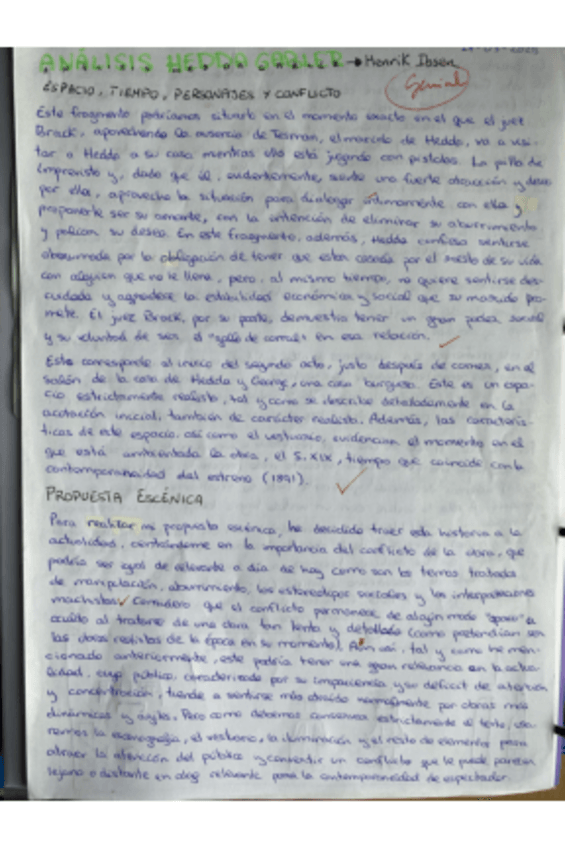 ANÁLISIS HEDDA GABLER → Henrik Ibsen
Genial
ESPACIO, TIEMPO, PERSONAJES Y CONFLICTO
Este fragmento podríamos situarlo en el momento exacto en el que el juez
Brack, aprovechando la ausencia de Tesman, el marido de Hedda, va a visi-
tar a Hedda a su casa mientras ella está jugando con pistolas. La pilla de
imprevisto y, dado que él, evidentemente, siente una fuerte atracción y deseo
por ella, aprovecha la situación para dialogar íntimamente con ella y
proponerle ser su amante, con la intención de eliminar su aburrimiento
y su deseo. En este fragmento, además, Hedda confiesa sentirse
abrumada por la obligación de tener que estar casada por el resto de su vida
con alguien que no le llena, pero, al mismo tiempo, no quiere sentirse des-
cuidada y agradece la estabilidad económica y social que su marido pro-
mete. El juez Brack, por su parte, demuestra tener un gran poder social
y su voluntad de ser el "gallo de corral" en esa relación.
Esto corresponde al inicio del segundo acto, justo después de comer, en el
salón de la casa de Hedda y George, una casa burguesa. Este es un espa-
cio estrictamente realista, tal y como se describe detalladamente en la
acotación inicial, también de carácter realista. Además, las caracterís-
ticas de este espacio, así como el vestuario, evidencian el momento en el
que está ambientada la obra, el S. XIX, tiempo que coincide con la
contemporaneidad del estreno (1891).
PROPUESTA ESCÉNICA
Para realizar mi propuesta escénica, he decidido traer esta historia a la
actualidad, centrándome en la importancia del conflicto de la obra, que
podría ser igual de relevante a día de hoy como son los temas tratados
de manipulación, aburrimiento, los estereotipos sociales y las interpretaciones
machistas. Considero que el conflicto permanece de algún modo u
oculto al tratarse de una obra tan lenta y detallada (como pretendían ser
las obras realistas de la época en su momento). Aún así, tal y como he men-
cionado anteriormente, este podría tener una gran relevancia en la actua-
lidad, cuyo público, caracterizado por su impaciencia y su déficit de atención
y concentración, tiende a sentirse más atraído normalmente por obras más
dinámicas y ágiles. Pero como debemos conservar estrictamente el texto, usa-
remos la escenografía, el vestuario, la iluminación y el resto de elementos para
atraer la atención del público y convertir un conflicto que le puede parecer
lejano o distante en algo relevante para la contemporaneidad de espectador.